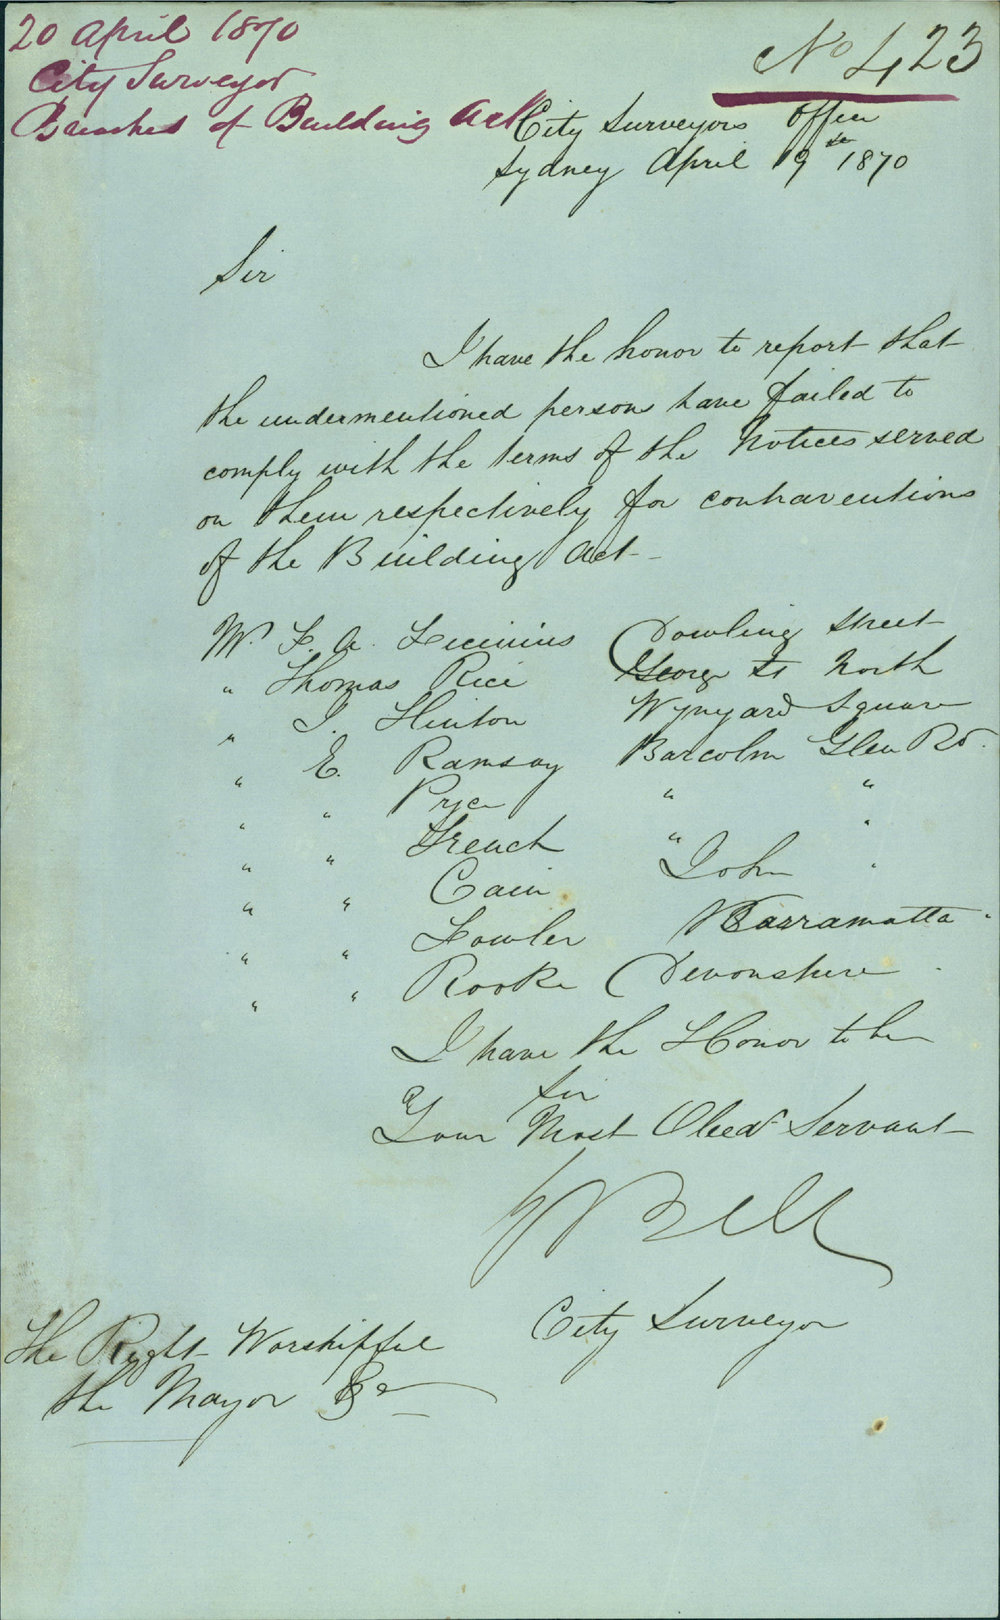 20 April 1870
City Surveyor
Breaches of Building Act
No 423
City Surveyors Office
Sydney April 19th 1870
Sir
I have the honor to report that
the undermentioned persons have failed to
comply with the terms of the Notices served
on them respectively for contraventions
of the Building Act-
Mr. F. A. Licinius Dowling Street
" Thomas Rice George St North
" J. Hinton Wynyard Square
" E. Ramsay Barcolm Glen Rd.
" " Pryce " "
" " French " "
" " Cain John "
" " Fowler Parramatta "
" " Rooke Devonshire "
I have the Honor to be
Sir
Your Most Obedt Servant
Bell
City Surveyor
The Right Worshipful
the Mayor &c